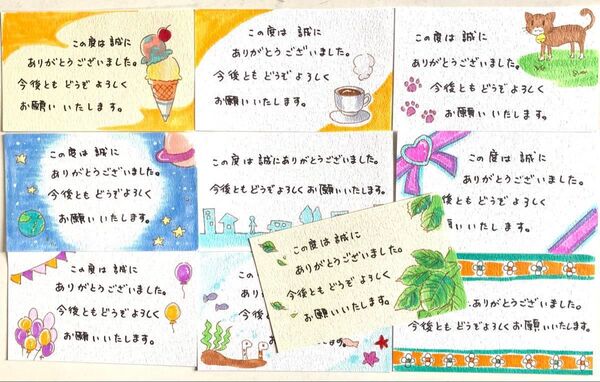 この度は 誠に
ありがとうございました。
今後とも どうぞ よろしく
お願い いたします。
この度は 誠に
ありがとうございました。
今後とも どうぞ よろしく
お願い いたします。
この度は 誠に
ありがとうございました。
今後とも どうぞ よろしく
お願い いたします。
この度は 誠に
ありがとうございました。
今後とも どうぞよろしく
お願い いたします。
この度は 誠にありがとうございました。
今後とも どうぞよろしく お願い いたします。
この度は 誠に
ありがとうございました。
今後とも どうぞ よろしく
願い いたします。
この度は 誠に
ありがとうございました。
今後とも どうぞ よろしく
お願い いたします。
この度は 誠に
ありがとうございました。
今後とも どうぞ よろしく
お願い いたします。
ありがとうございました。
今後とも どうぞよろしく お願いいたします。